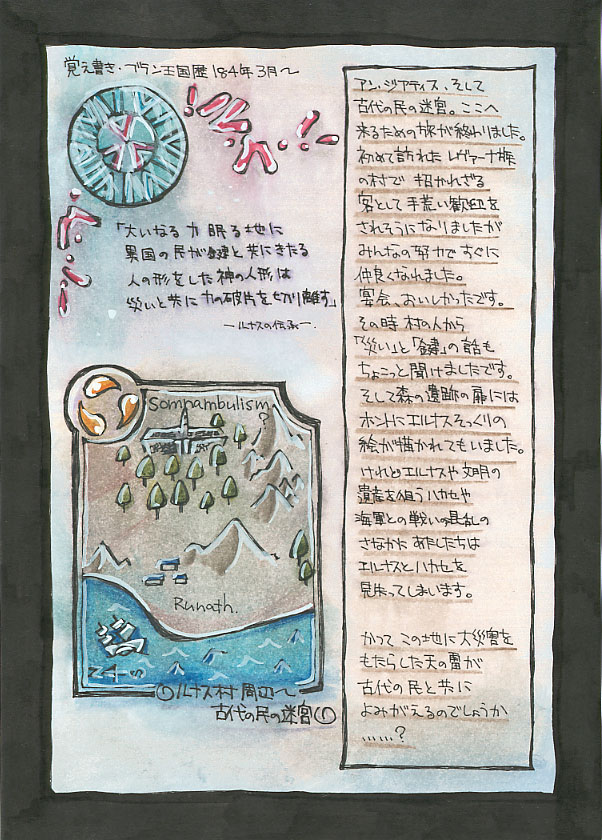 覚え書き・ブラン王国歴184年3月～
「大いなる力 眠る地に
異国の民が鍵と共にきたる
人の形をした神の人形は
災いと共に力の破片を切り離す」
―ルナスの伝承―
Somnambulism
?
Runath.
ルナス村 周辺～
古代の民の迷宮
アン・ジアティス、そして
古代の民の迷宮。ここへ
来るための旅が終わりました。
初めて訪れた レヴァーナ族
の村で 招かれざる
客として 手荒い歓迎を
されそうになりましたが
みんなの努力で すぐに
仲良くなれました。
宴会、おいしかったです。
その時 村の人から
「災い」と「鍵」の話も
ちょこっと聞けましたです。
そして森の遺跡の扉には
ホントにエルナスそっくりの
絵が描かれてもいました。
けれどエルナスや 文明の
遺産を狙うハカセや
海軍との戦いの混乱の
さなかに あたしたちは
エルナスとハカセを
見失ってしまいます。
かつて この地に大災害を
もたらした天の雷が
古代の民と共に
よみがえるのでしょうか
……？